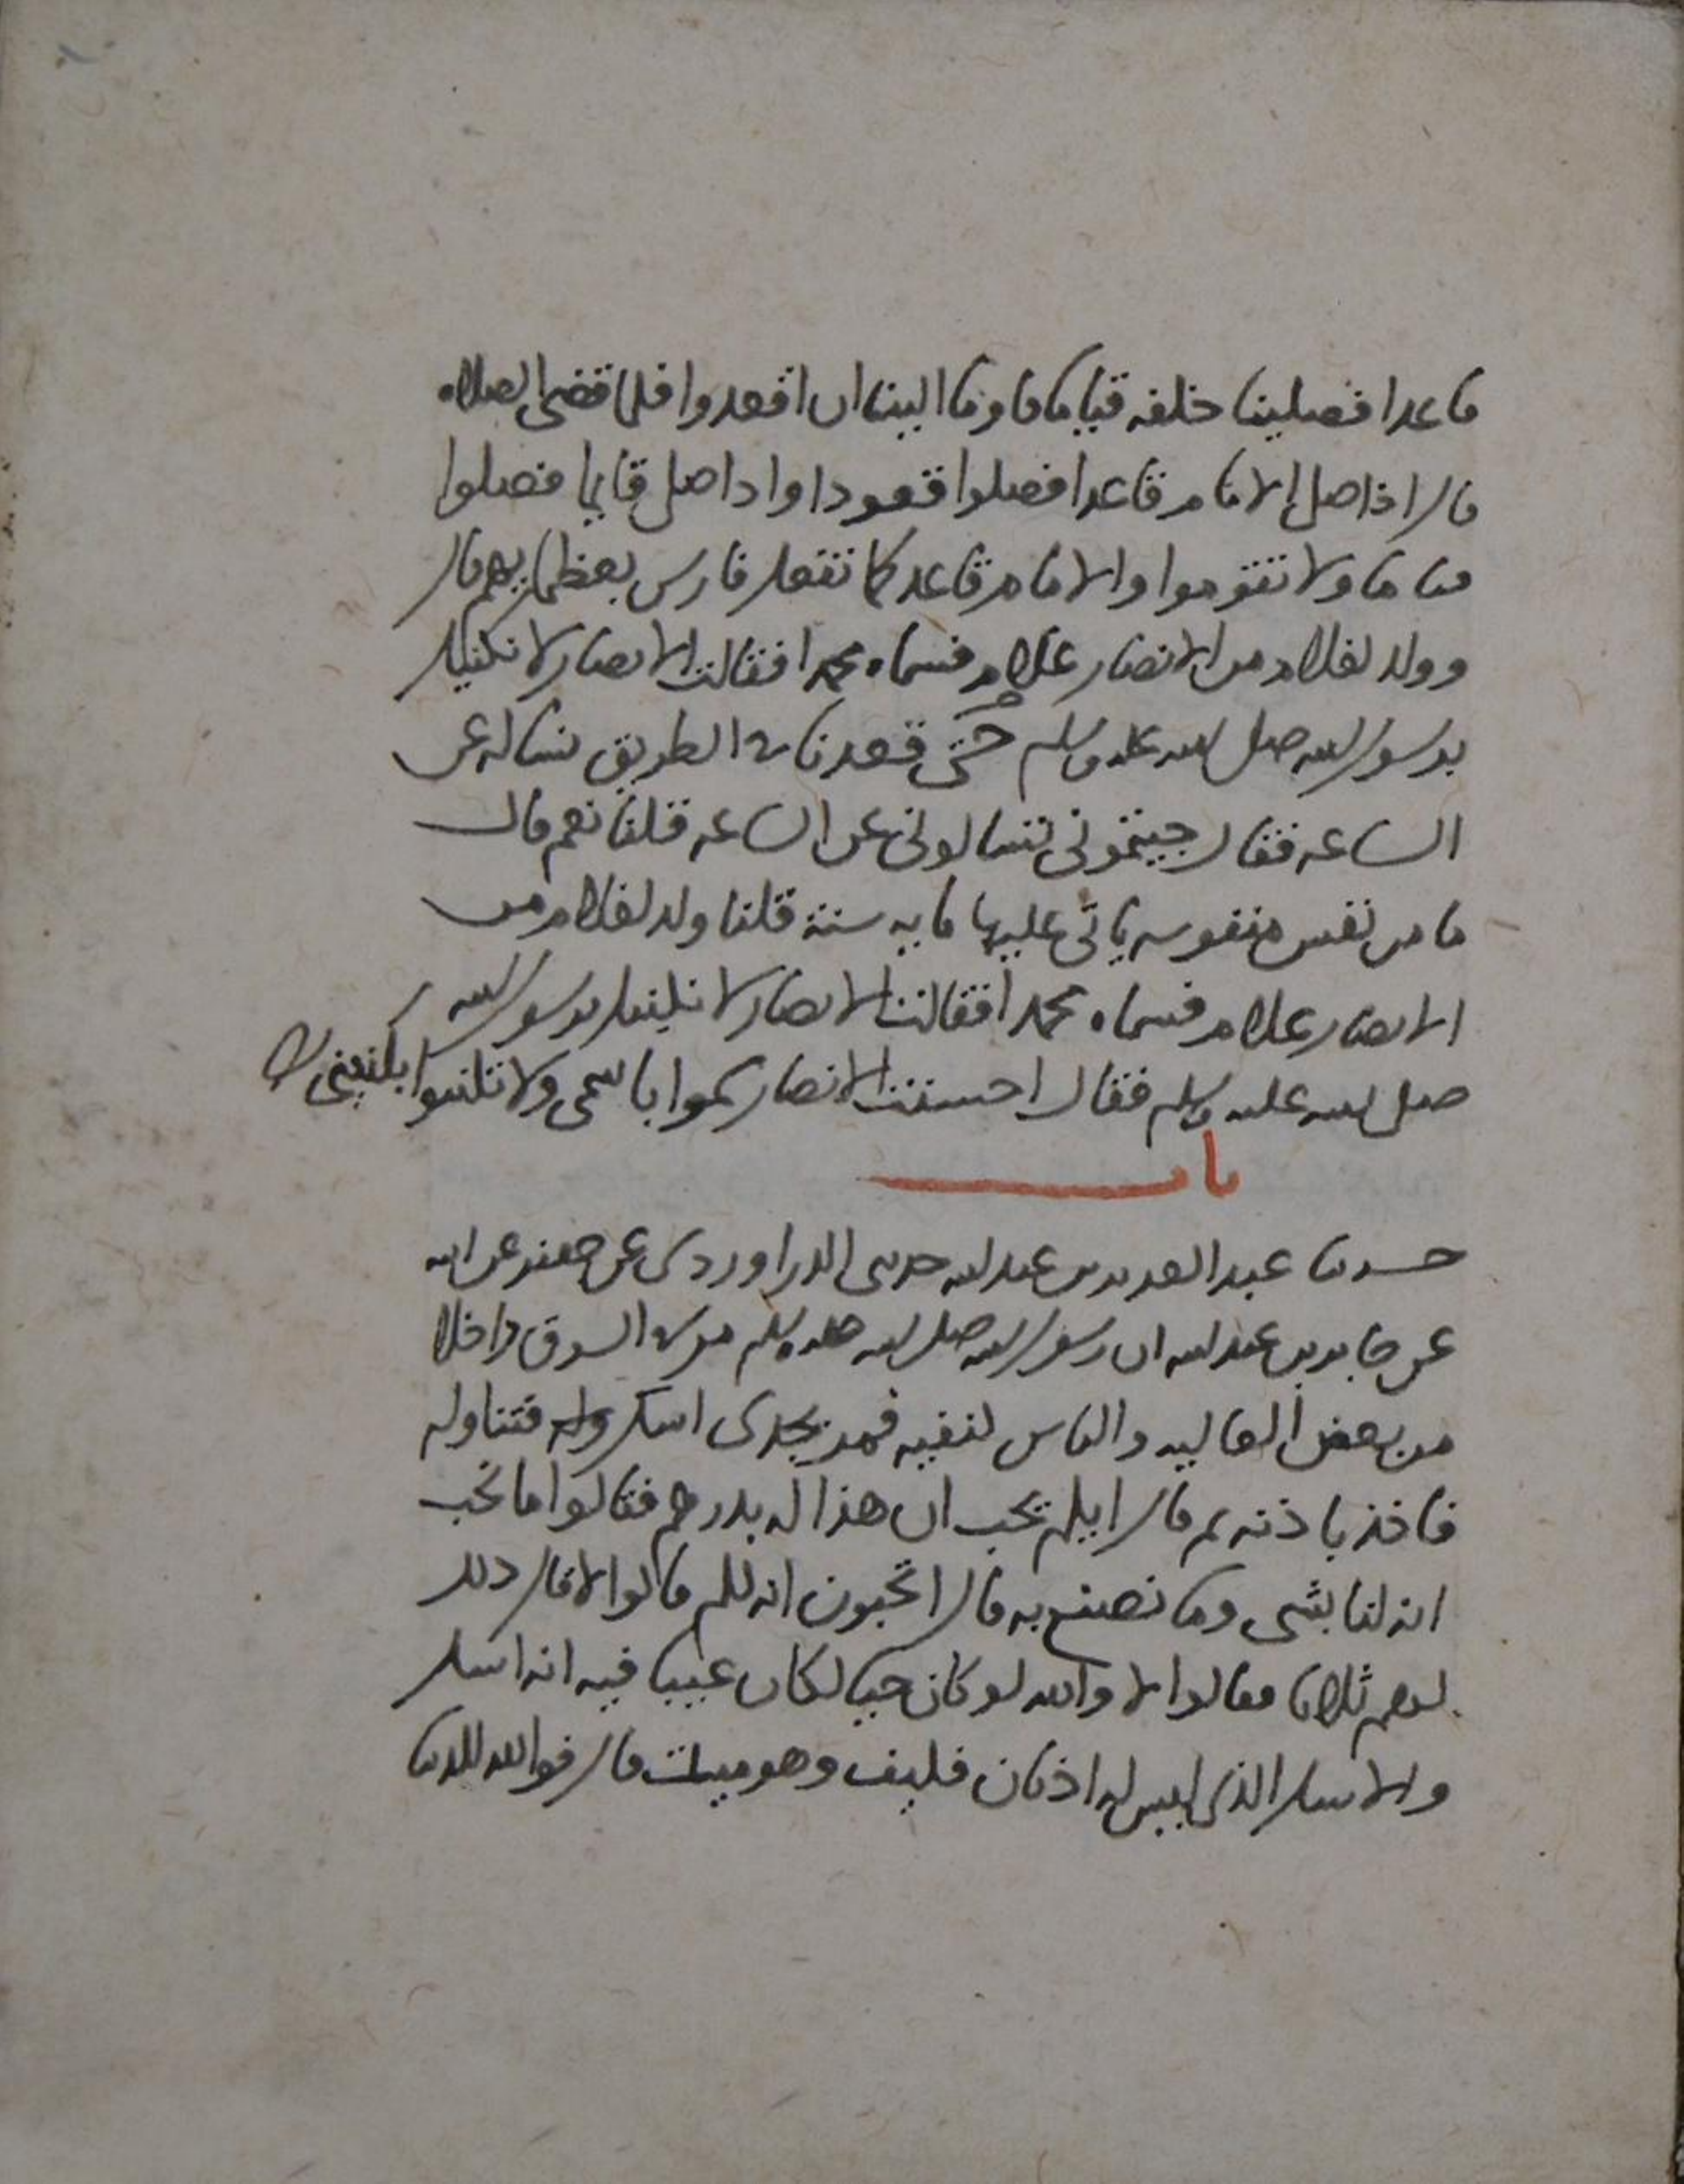 قاعدا فصلينا خلفه قياما فاومأ الينا ان اقعدوا فلما قضى الصلاه
قال اذا صلى الامام قاعدا فصلوا قعودا واذا صلى قايما فصلوا
قياما ولا تقوموا والامام قاعد كما تفعل فارس بعظمايهم قال
وولد لغلام من الانصار غلام فسماه محمدا فقالت الانصار لا نكنيك
برسول الله صلى الله عليه وسلم حتى قعدنا في الطريق نساله عن
الساعه فقال جيتموني تسالوني عن الساعه قلنا نعم قال
ما من نفس منفوسه ياتى عليها مايه سنة قلنا ولد لغلام من
الانصار غلام فسماه محمدا فقالت الانصار لا نكنيك برسول الله
صلى الله عليه وسلم فقال احسنت الانصار سموا باسمى ولا تكنوا بكنيتى
باب
حدثنا عبد العزيز بن عبد الله حدثنى الدراوردى عن جعفر عن ابيه
عن جابر بن عبد الله ان رسول الله صلى الله عليه وسلم مر في السوق داخلا
من بعض العاليه والناس كنفيه فمر بجدى اسك فتناوله
فاخذ باذنه ثم قال ايكم يحب ان هذا له بدرهم فقالوا ما نحب
انه لنا بشى وما نصنع به قال اتحبون انه لكم قالوا لا قال ذلك
لهم ثلاثا فقالوا لا والله لو كان حيا لكان عيبا فيه انه اسك
والاسك الذى ليس له اذنان فكيف وهو ميت قال فوالله للدنيا